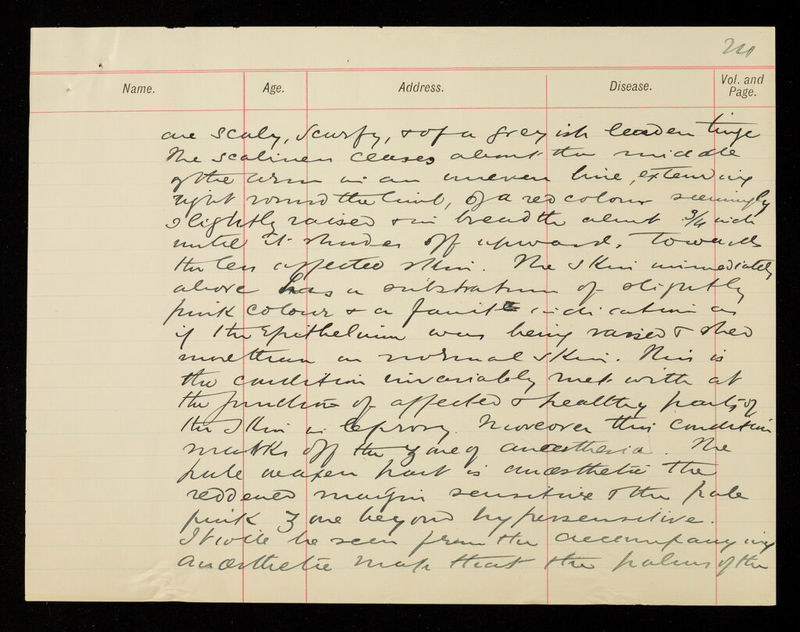 210
Name. Age. Address. Disease. Vol. and Page.
are scaly, scurfy, & of a greyish leaden tinge
The scaliness ceases about the middle
of the arm in an uneven line, extending
right round the limb, of a red colour seemingly
slightly raised & in breadth about 3/4 inch
until it shades off upward, towards
the less affected skin. The skin immediately
above has a substratum of slightly
pink colour & a faint indication as
if the Epithelium was being raised & shed
more than on normal skin. This is
the condition invariably met with at
the junction of affected & healthy parts of
the skin in leprosy. Moreover this condition
marks off the zone of anæsthesia. The
pale waxen part is anæsthetic the
reddened margin sensitive & the pale
pink zone beyond hypersensitive.
It will be seen from the accompanying
anæsthetic map that the palms of the